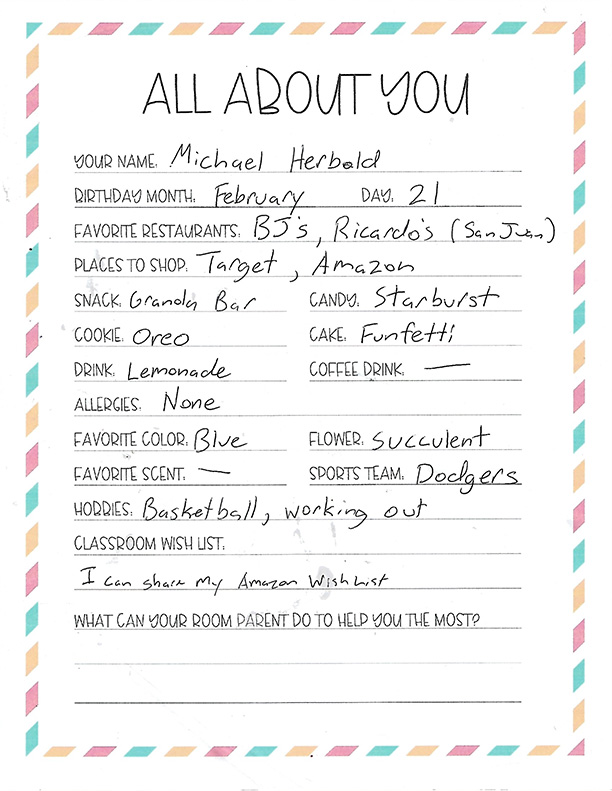 ALL ABOUT YOU
YOUR NAME: Michael Herbold
BIRTHDAY MONTH: February DAY: 21
FAVORITE RESTAURANTS: BJ's, Ricardo's (San Juan)
PLACES TO SHOP: Target, Amazon
SNACK: Granola Bar CANDY: Starburst
COOKIE: Oreo CAKE: Funfetti
DRINK: Lemonade COFFEE DRINK: —
ALLERGIES: None
FAVORITE COLOR: Blue FLOWER: Succulent
FAVORITE SCENT: — SPORTS TEAM: Dodgers
HOBBIES: Basketball, working out
CLASSROOM WISH LIST:
I can share my Amazon Wish List
WHAT CAN YOUR ROOM PARENT DO TO HELP YOU THE MOST?